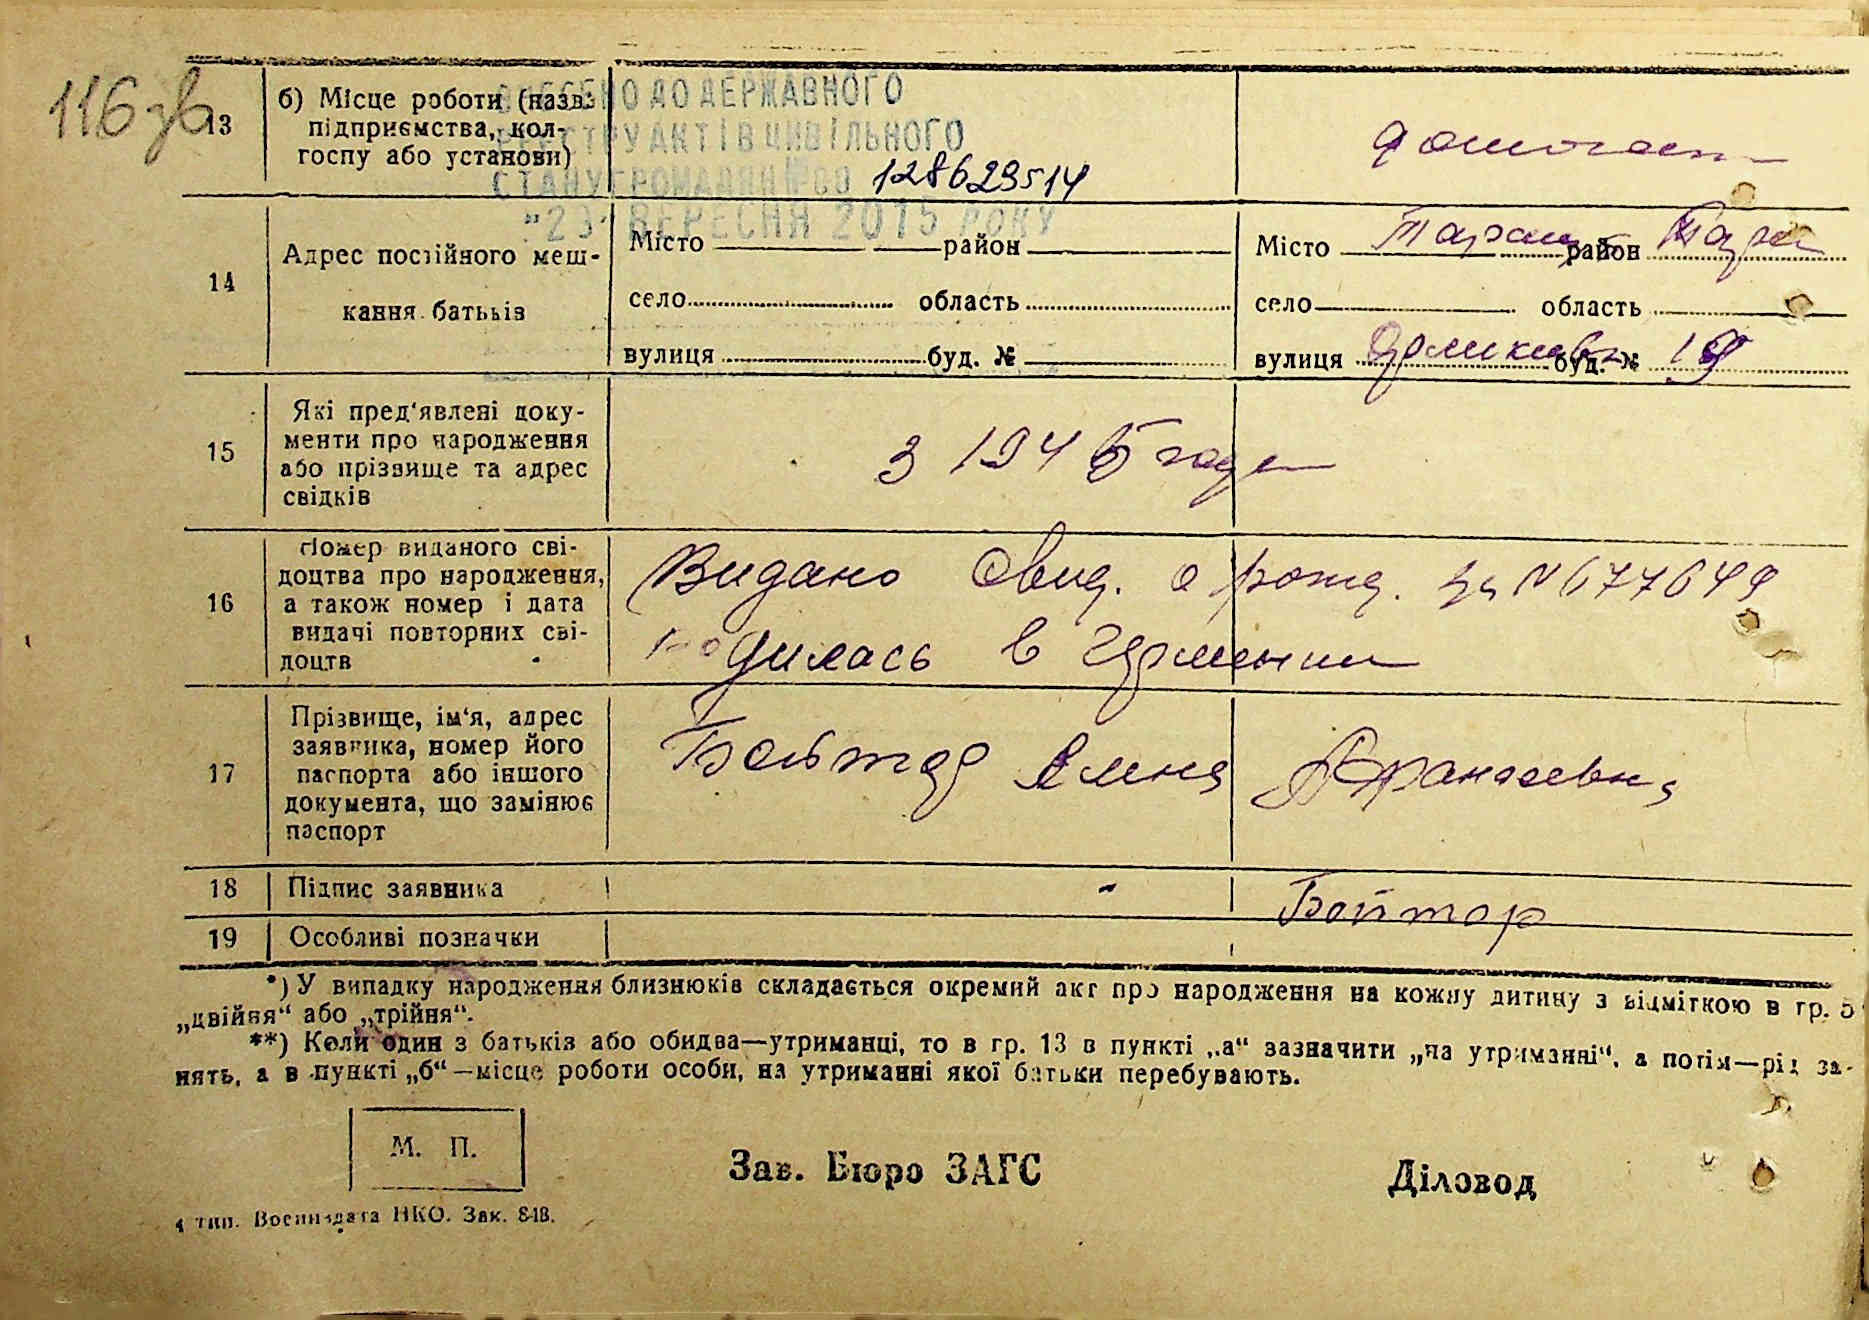 116 зв
13
б) Місце роботи (назва
підприємства, кол-
госпу або установи)
ВНЕСЕНО ДО ДЕРЖАВНОГО
РЕЄСТРУ АКТІВ ЦИВІЛЬНОГО
СТАНУ ГРОМАДЯН № 00 128623514
"23" ВЕРЕСНЯ 2015 РОКУ
14
Адрес постійного меш-
кання батьків
Місто район
село область
вулиця буд. №
Місто Тараща район Тара
село область
вулиця буд. № 19
15
Які пред'явлені доку-
менти про народження
або прізвище та адрес
свідків
З 1945 года
16
Номер виданого сві-
доцтва про народження,
а також номер і дата
видачі повторних сві-
доцтв
Видано Свид. о рожд. за N 677649
родилась в Германии
17
Прізвище, ім'я, адрес
заявника, номер його
паспорта або іншого
документа, що замінює
паспорт
Бойтор Анна Афанасевна
18
Підпис заявника
Бойтор
19
Особливі позначки
*) У випадку народження близнюків складається окремий акт про народження на кожну дитину з відміткою в гр. 5
„двійня“ або „трійня“.
**) Коли один з батьків або обидва—утриманці, то в гр. 13 в пункті „а“ зазначити „на утриманні“, а потім—рід за-
нять, а в пункті „б“—місце роботи особи, на утриманні якої батьки перебувають.
М. П.
Зав. Бюро ЗАГС
Діловод
4 тип. Воениздата НКО. Зак. 848.